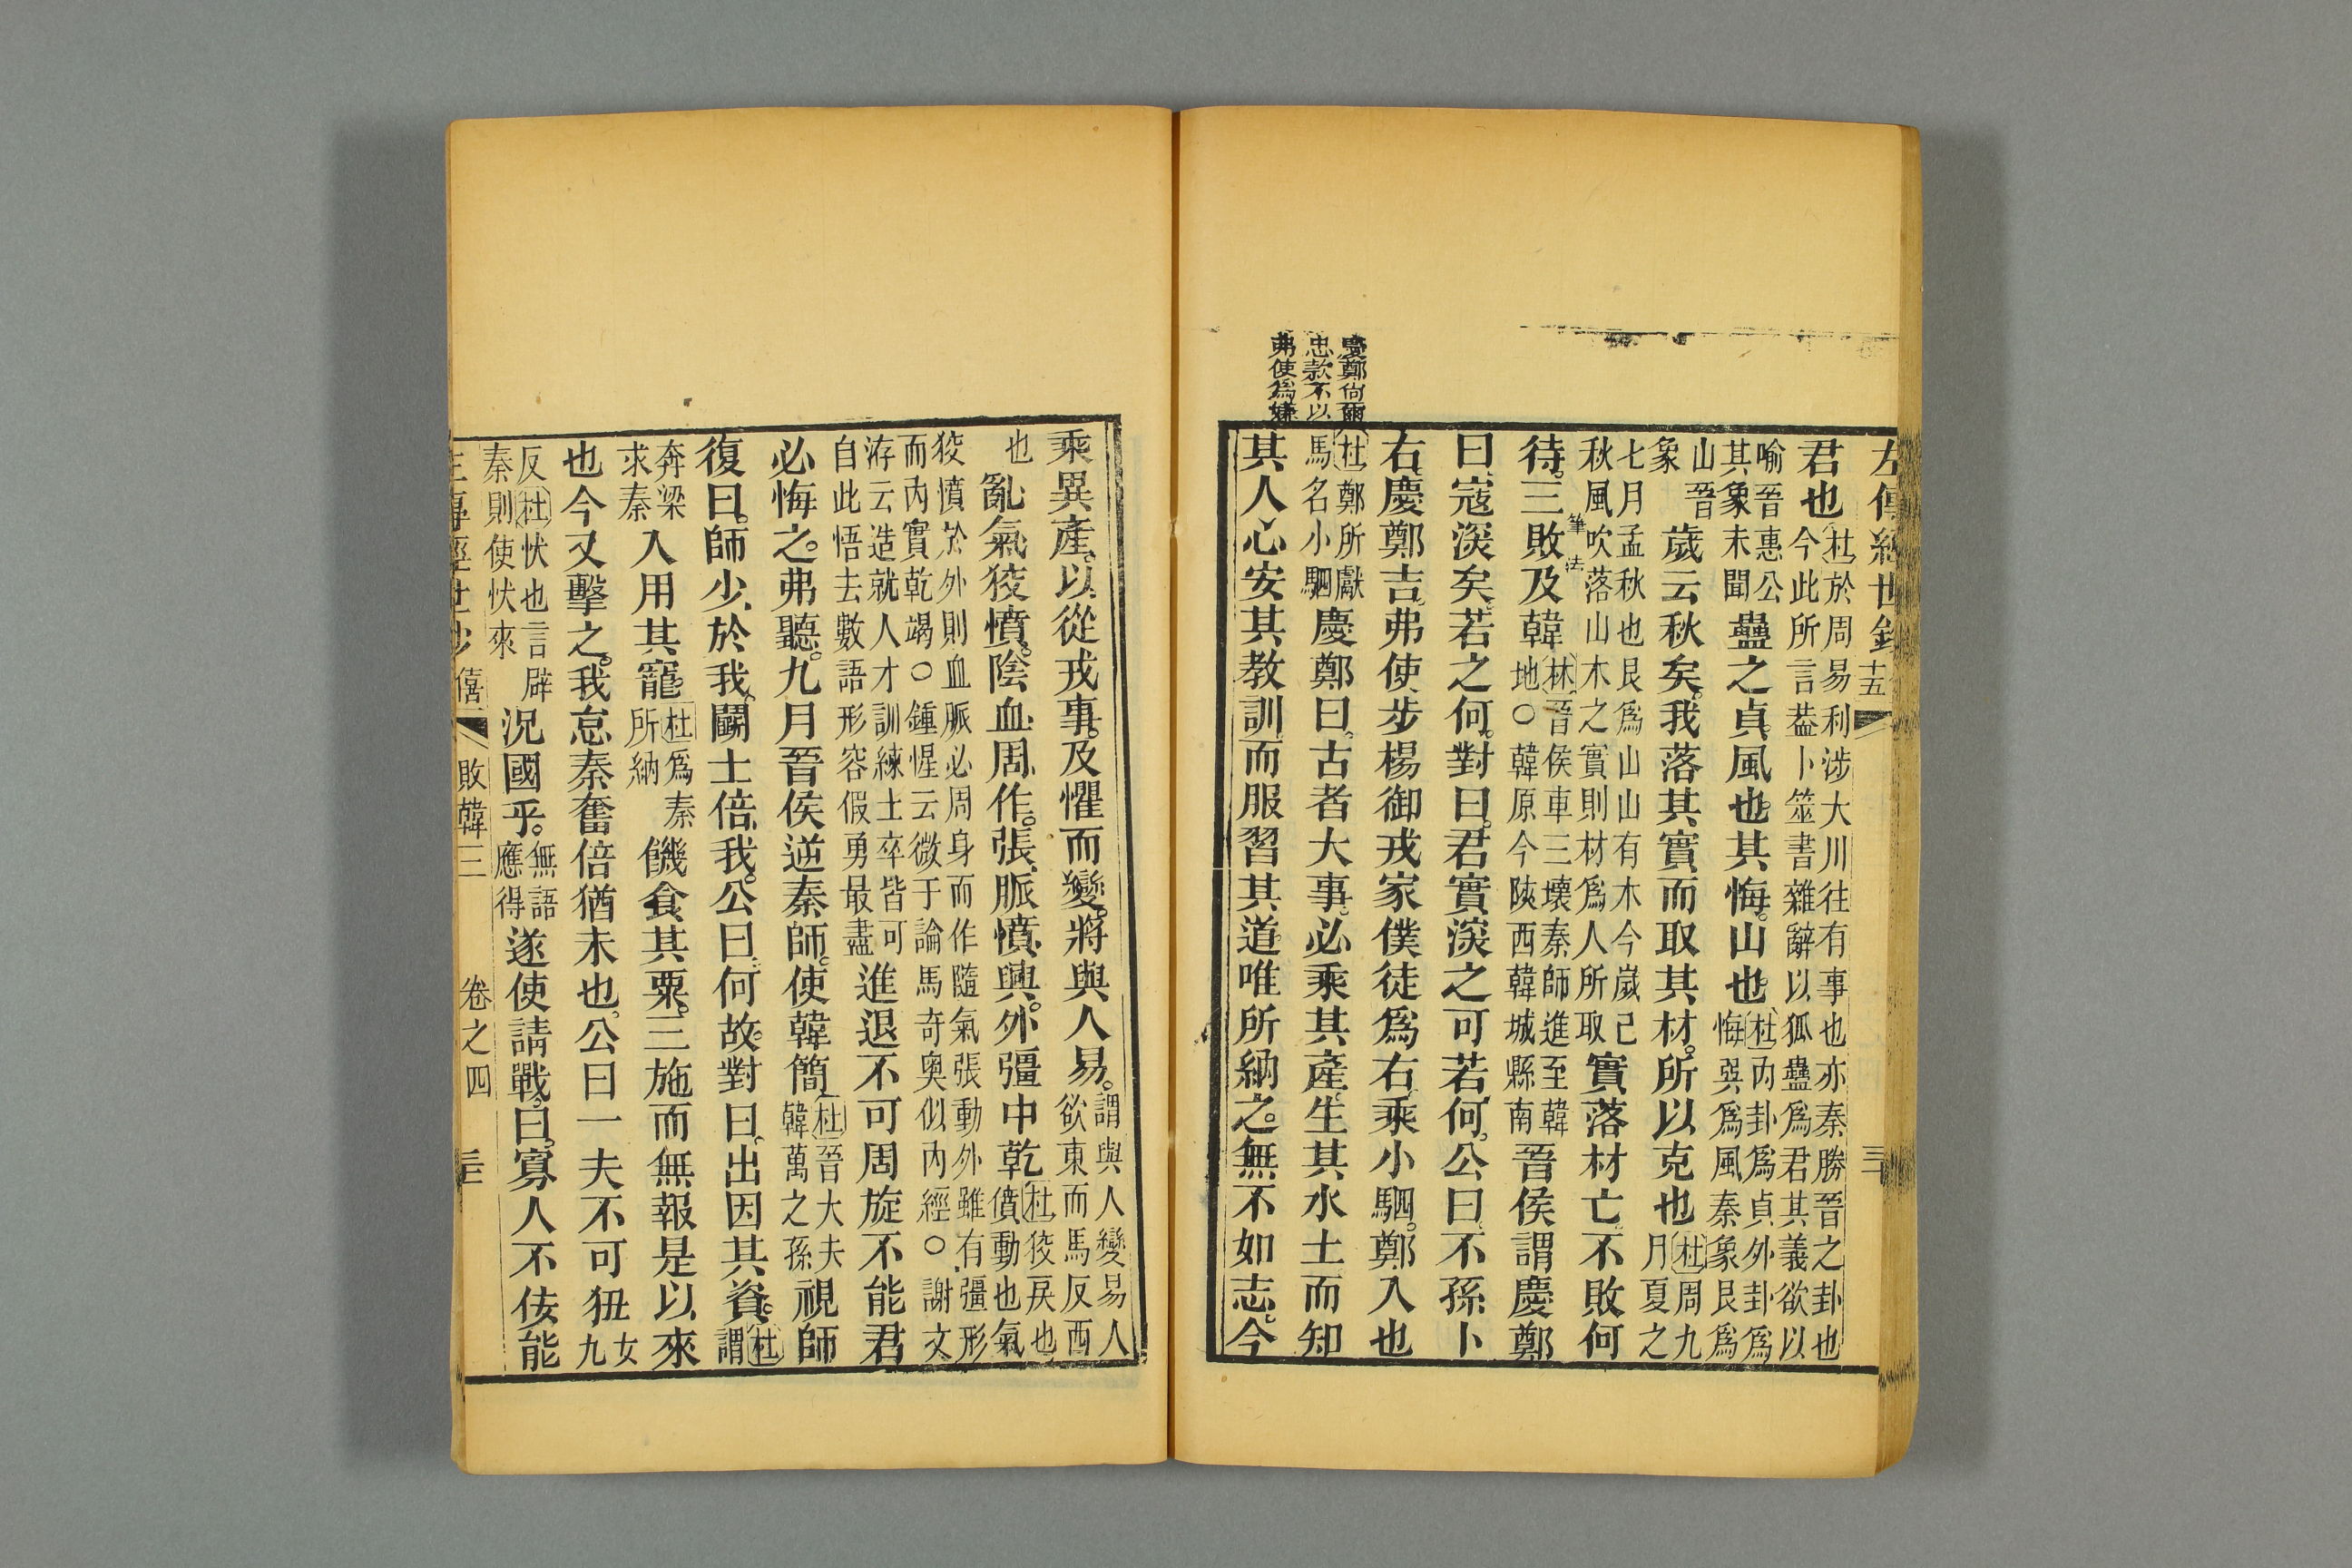 慶鄭尚爾
忠款不以
弗使爲嫌
左傳經世鈔 十五
君也杜於周易利涉大川往有事也亦秦勝晉之卦也今此所言葢卜筮書雜辭以狐蠱爲君其義欲以
喻晉惠公其象未聞蠱之貞風也其悔山也杜内卦爲貞外卦爲悔巽爲風秦象艮爲
山晉象歲云秋矣我落其實而取其材所以克也杜周九月夏之
七月孟秋也艮爲山山有木今歲己秋風吹落山木之實則材爲人所取實落材亡不敗何
待三敗及韓筆法林晉侯車三壞秦師進至韓地○韓原今陝西韓城縣南晉侯謂慶鄭
曰寇深矣若之何對曰君實深之可若何公曰不孫卜
右慶鄭吉弗使步楊御戎家僕徒爲右乘小駟鄭入也
杜鄭所獻馬名小駟慶鄭曰古者大事必乘其產生其水土而知
其人心安其教訓而服習其道唯所納之無不如志今
乘異產以從戎事及懼而變將與人易謂與人變易人欲東而馬反西
也亂氣狡憤陰血周作張脈憤興外彊中乾杜狡戾也僨動也氣
狡憤於外則血脈必周身而作隨氣張動外雖有彊形而内實乾竭○鍾惺云微于論馬奇奥似内經○謝文
洊云造就人才訓練士卒皆可自此悟去數語形容假勇最盡進退不可周旋不能君
必悔之弗聽九月晉侯逆秦師使韓簡杜晉大夫韓萬之孫視師
復曰師少於我鬬士倍我公曰何故對曰出因其資杜謂
奔梁求秦入用其寵杜爲秦所納饑食其粟三施而無報是以來
也今又擊之我怠秦奮倍猶未也公曰一夫不可狃女九
反杜忕也言辟秦則使忕來況國乎無語應得遂使請戰曰寡人不佞能
左傳經世鈔 僖 敗韓三 卷之四